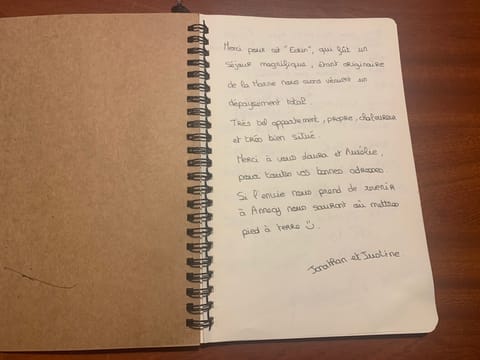 Merci pour cet "Ecrin", qui fût un
séjour magnifique, étant originaire
de la Marne nous avons vraiment un
dépaysement total.
Très bel appartement, propre, chaleureux
et très bien situé.
Merci à vous Laura et Aurélie,
pour toutes vos bonnes adresses.
Si l'envie nous prend de revenir
à Annecy nous sauront où mettre
pied à terre ☺.
Jonathan et Justine